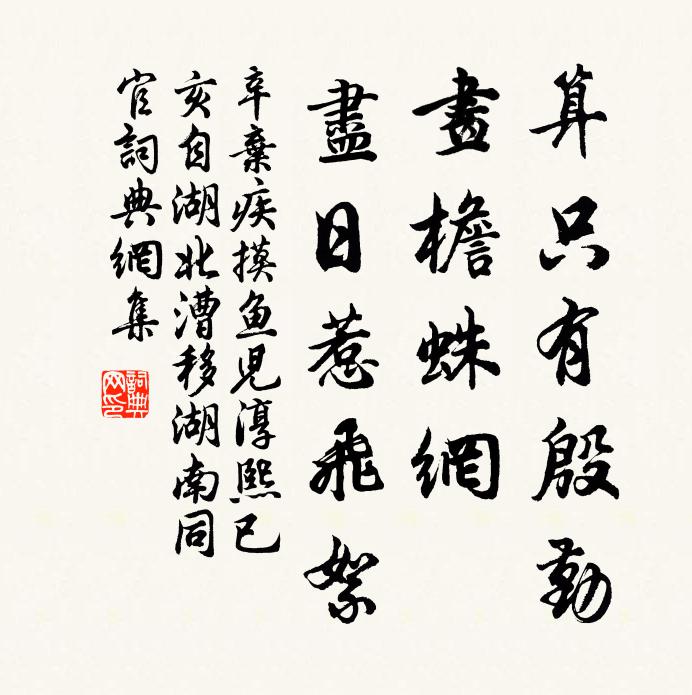 算只有殷勤
畫檐蛛網
盡日惹飛絮
辛棄疾摸魚児淳熙已
亥自湖北漕移湖南同
官詞典網集
詞典网印